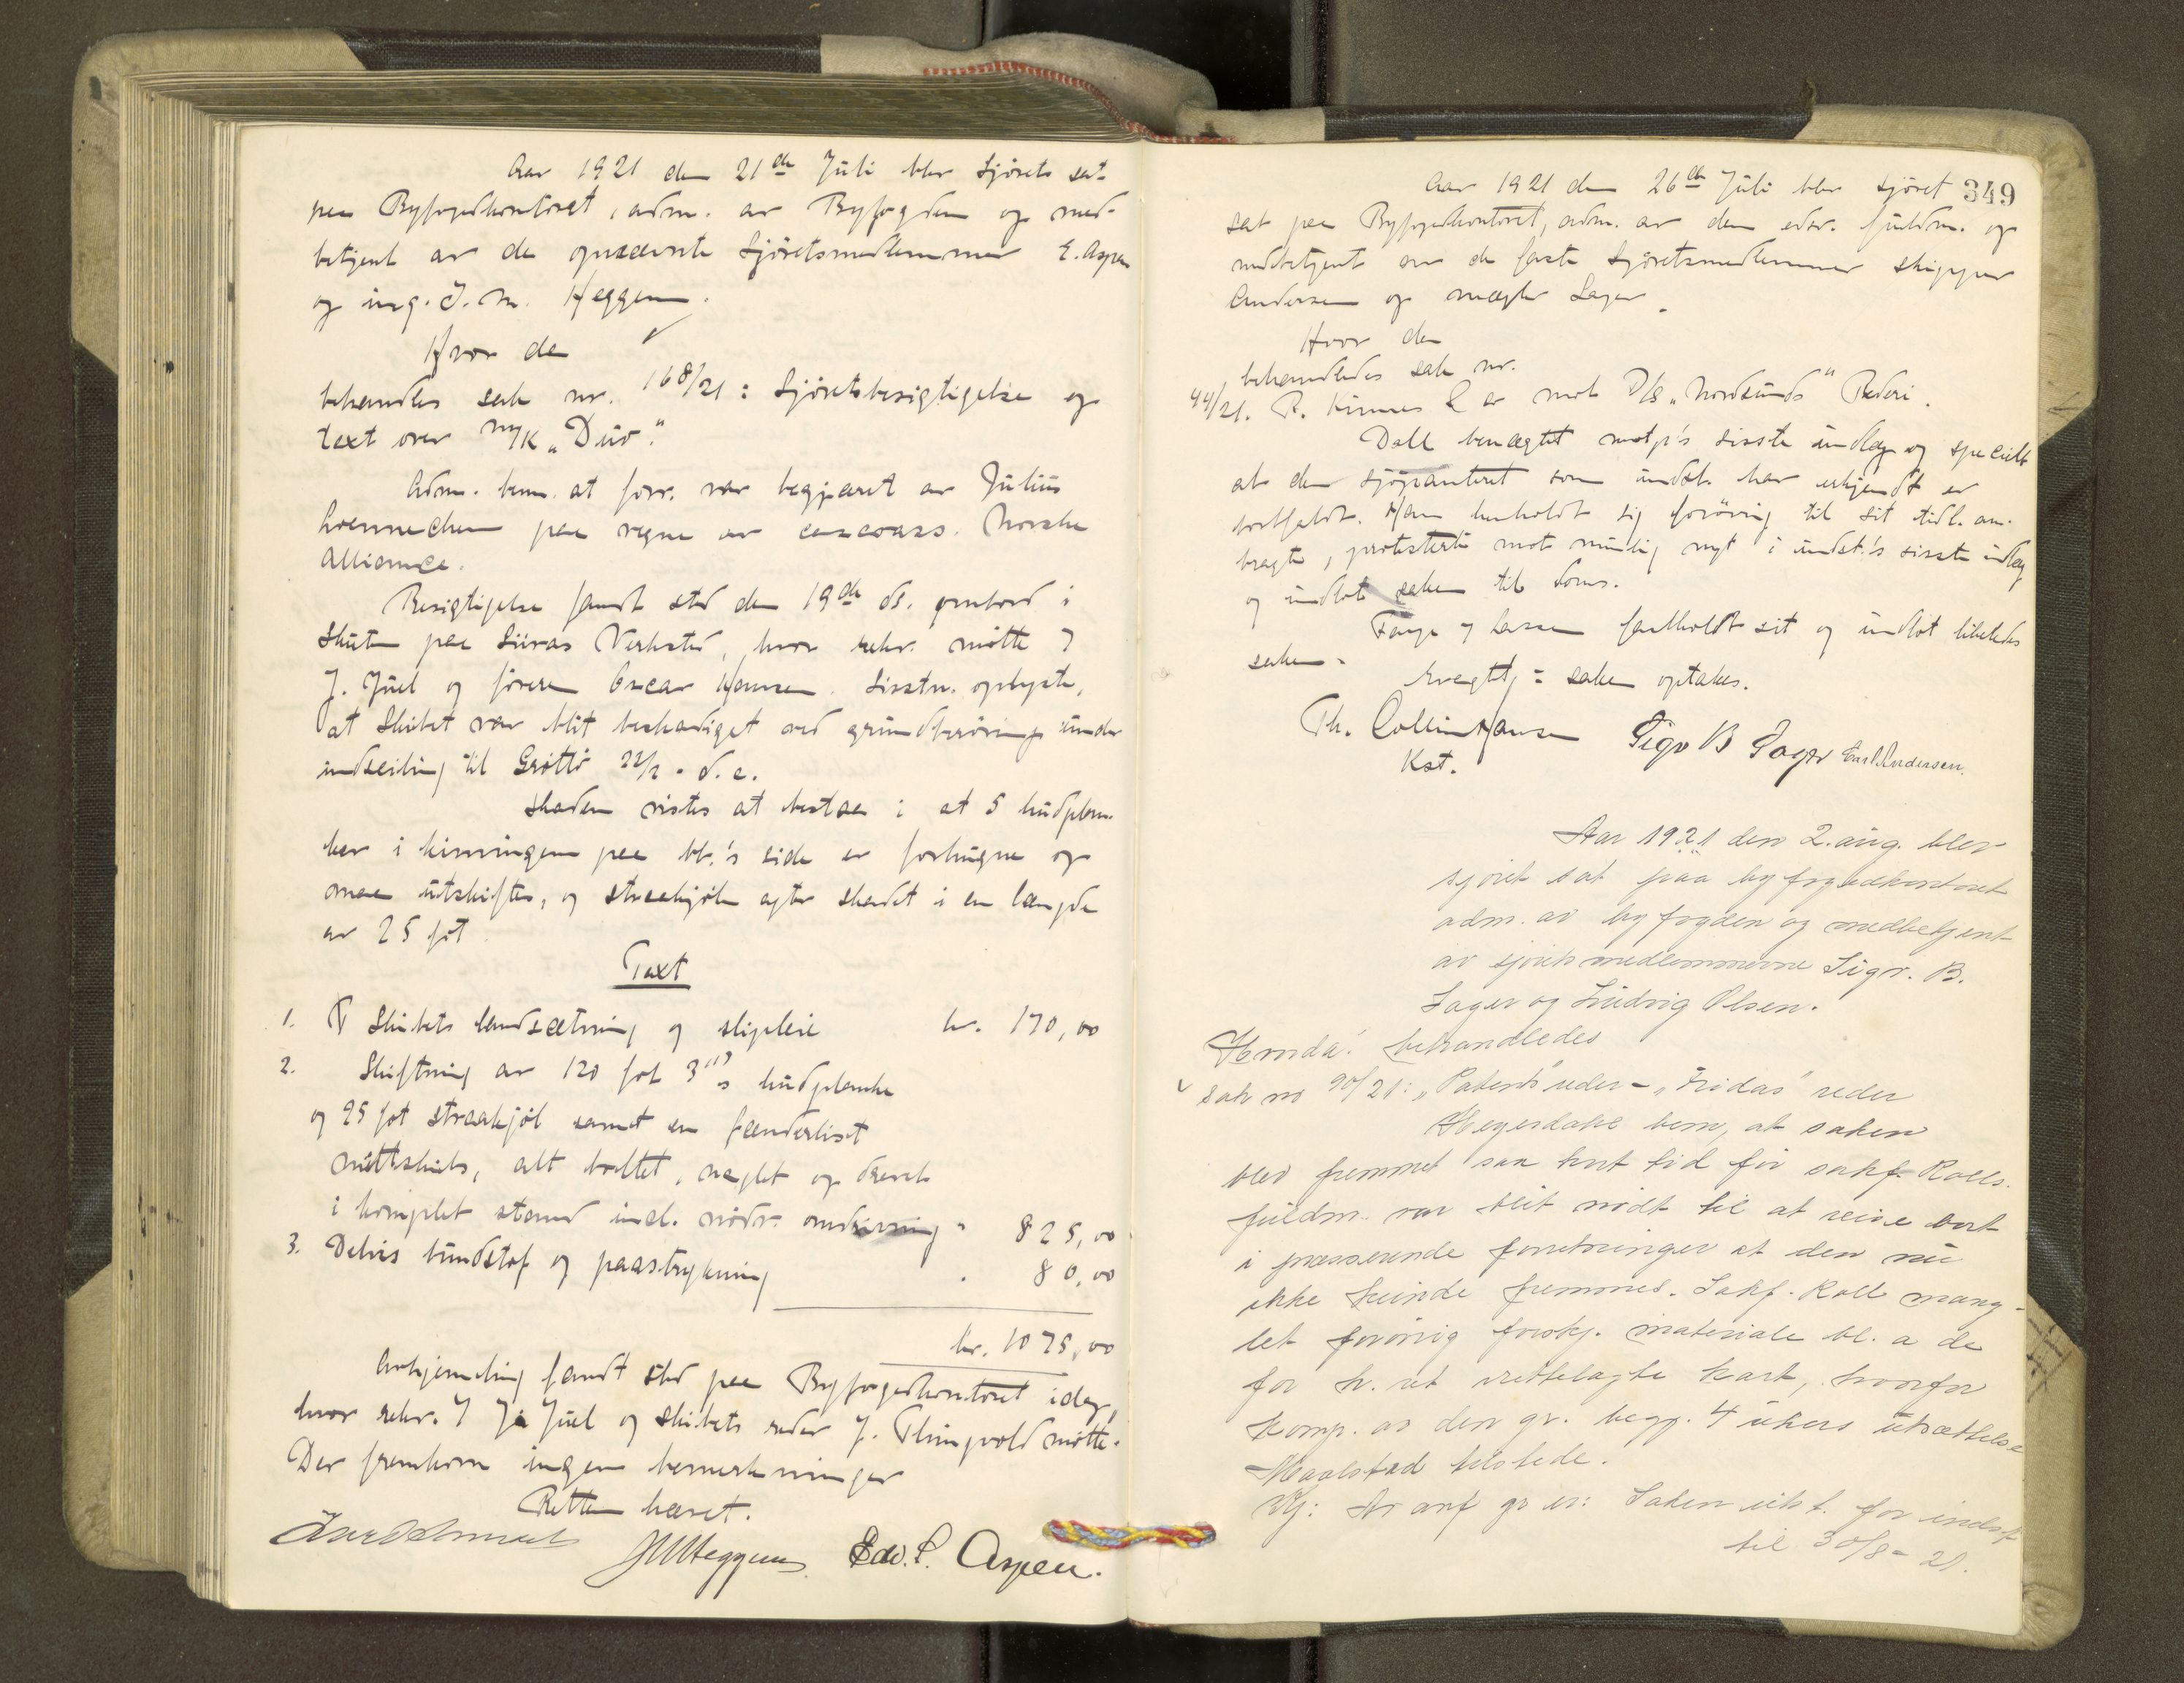 Aar 1921 den 21de Juli blev Sjöret sat
paa Byfogedkontoret, adm. av Byfogden og med-
betjent av de opnævnte Sjöretsmedlemmer E. Aspen
og ing. J. M. Heggem.
Hvor da
behandles sak nr. 168/21: Sjöretsbesigtigelse og
taxt over M/K „Duo".
Adm. bem. at forr. var begjæret av Julius
paa vegne av cascoass. Norske
Alliance.
Besigtigelse fandt sted den 19de ds. ombord i
Skuten paa Verksted, hvor rekv. mötte
J. Juel og föreren Oscar Hansen. Sisstn. oplyste,
at Skibet var blit beskadiget ved grundberöring under
indseiling til
Skaden vistes at bestaa i at 5 hudplan-
ker i kimmingen paa bb.'s side er forhugne og
maa utskiftes, og straakjöl agter skadet i en længde
av 25 fot
Taxt
1. Skibets landsætning og slipleie kr. 170,00
2. Skiftning av 120 fot 3" hudplanke
og 25 fot straakjöl samt en fenderlist
mittskibs, alt boltet, naglet og drevet
i komplet stand incl. nödv. " 825,00
3. Delvis bundstof og paastrykning " 80,00
kr. 1075,00
Avhjemling fandt sted paa Byfogedkontoret idag,
hvor rekv. J Juel og skibets reder J. mötte.
Der fremkom ingen bemerkninger
Retten hævet.
JMHeggem Edv. P. Aspen.
349
Aar 1921 den 26de Juli blev Sjöret
sat paa Byfogedkontoret, adm. av den edsv. fuldm. og
medbetjent av de faste Sjöretsmedlemmer skipper
Andersen og mægler Sager.
Hvor da
behandledes sak nr.
44/21. R. Kinnes mot D/S „Nordsunds" Rederi.
Dall benægtet motp's sisste indlæg og specielt
at den sjöpanteret som indst. har erkjendt er
bortfaldt. Han henholdt sig forövrig til sit tidl. an-
bragte, protesterte mot mulig nyt i indst.'s sisste indlæg
og indlot saken til doms.
fastholdt sit og indlot likeledes
saken.
: saken optakes.
Th. Collin Hansen Sigv B Sager Andersen.
Kst.
Aar 1921 den 2. aug. blev
sjöret sat paa byfogedkontoret
adm. av byfogden og medbetjent
av sjöretsmedlemmerne Sigv. B.
Sager og Ludvig Olsen.
Hvorda behandledes
Sak no 90/21: „Patents" reder - „Fridas" reder
bem, at saken
blev fremmet saa kort tid för sakf. Rolls
fuldm. var blit nödt til at reise bort
i presserende forretninger at den nu
ikke kunde fremmes. Sakf. Roll mang-
let forövrig forskj. materiale bl. a de
for h. ret fremlagte kart, hvorfor
komp. av den gr. begj. 4 ukers utsættelse
tilstede.
Kj: Av anf gr er: Saken uts t. for
til 30/8 - 21.